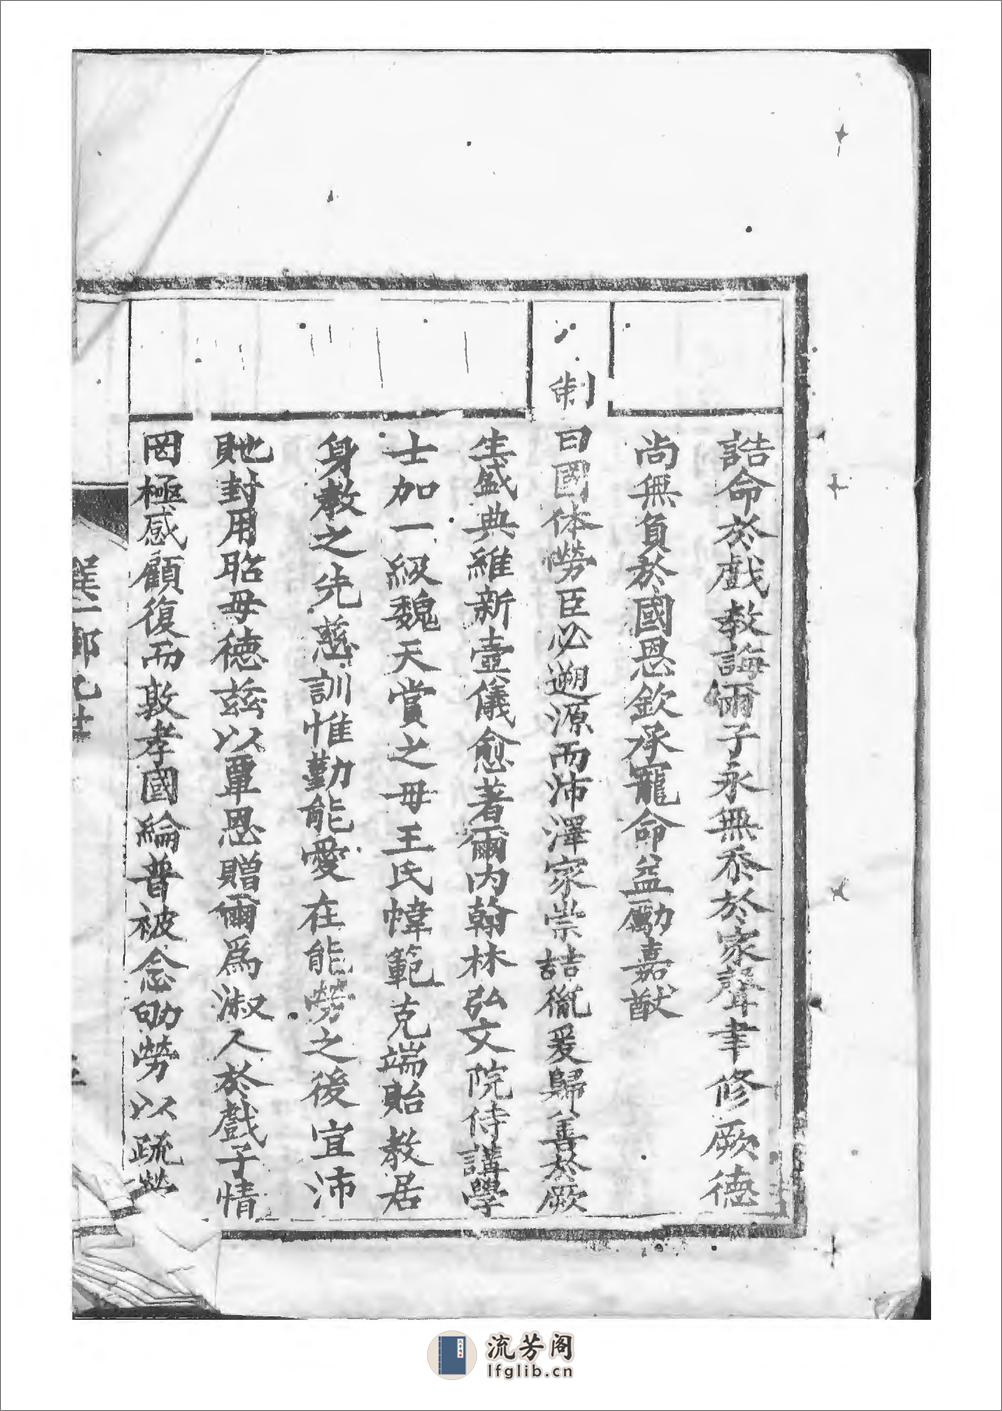 誥命於戲教誨爾子永無忝於家聲聿修厥德
尚無負於國恩欽承寵命益勵嘉猷
制
曰國体勞臣必遡源而沛澤家崇喆胤爰歸善於厥
生盛典維新壼儀愈著爾内翰林弘文院侍講學
士加一級魏天賞之母王氏幃範克端貽教居
身教之先慈訓惟勤能愛在能勞之後宜沛
貤封用昭母德兹以覃恩贈爾爲淑人於戲子情
罔極感顧復而敦孝國綸普被念劬勞以疏榮
流芳阁
lfglib.cn